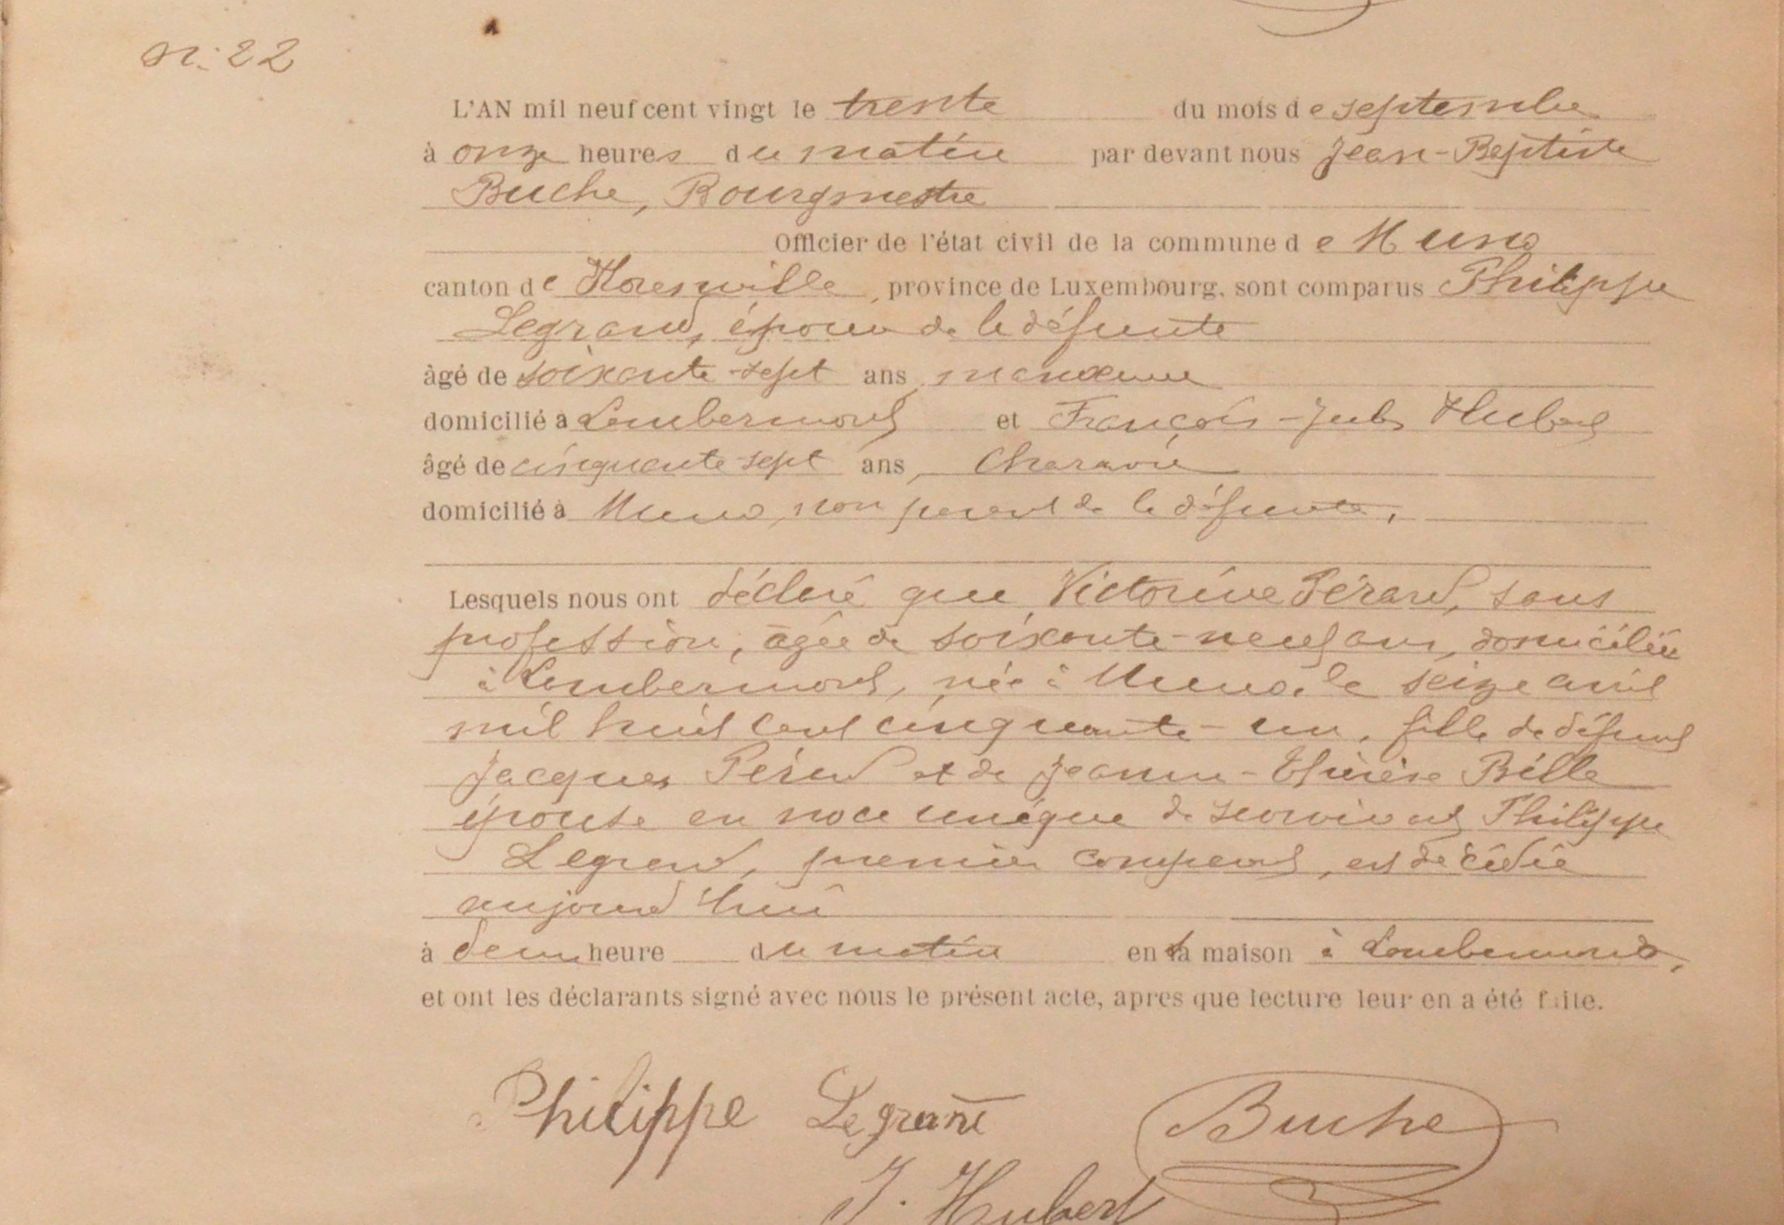 n: 22
L'AN mil neuf cent vingt le trente du mois de septembre
à onze heures du matin par devant nous Jean-Baptiste
Buche, Bourgmestre
Officier de l'état civil de la commune de Muno
canton de Florenville, province de Luxembourg, sont comparus Philippe
Legrand, époux de la défunte
âgé de soixante-sept ans, manœuvre
domicilié à Lambermont et François-Jules Hubert
âgé de cinquante-sept ans,
domicilié à Muno, non parent de la défunte,
Lesquels nous ont déclaré que Victorine Pérard, sans
profession, âgée de soixante-neuf ans, domiciliée
à Lambermont, née à Muno, le seize avril
mil huit cent cinquante-un, fille de défunt
Jacques Pérard et de Jeanne-Thérèse Bille
épouse en noce unique de survivant Philippe
Legrand, premier comparant, est décédée
aujourd'hui
à deux heure du matin en sa maison à Lambermont,
et ont les déclarants signé avec nous le présent acte, apres que lecture leur en a été faite.
Philippe Legrand Buche
J. Hubert